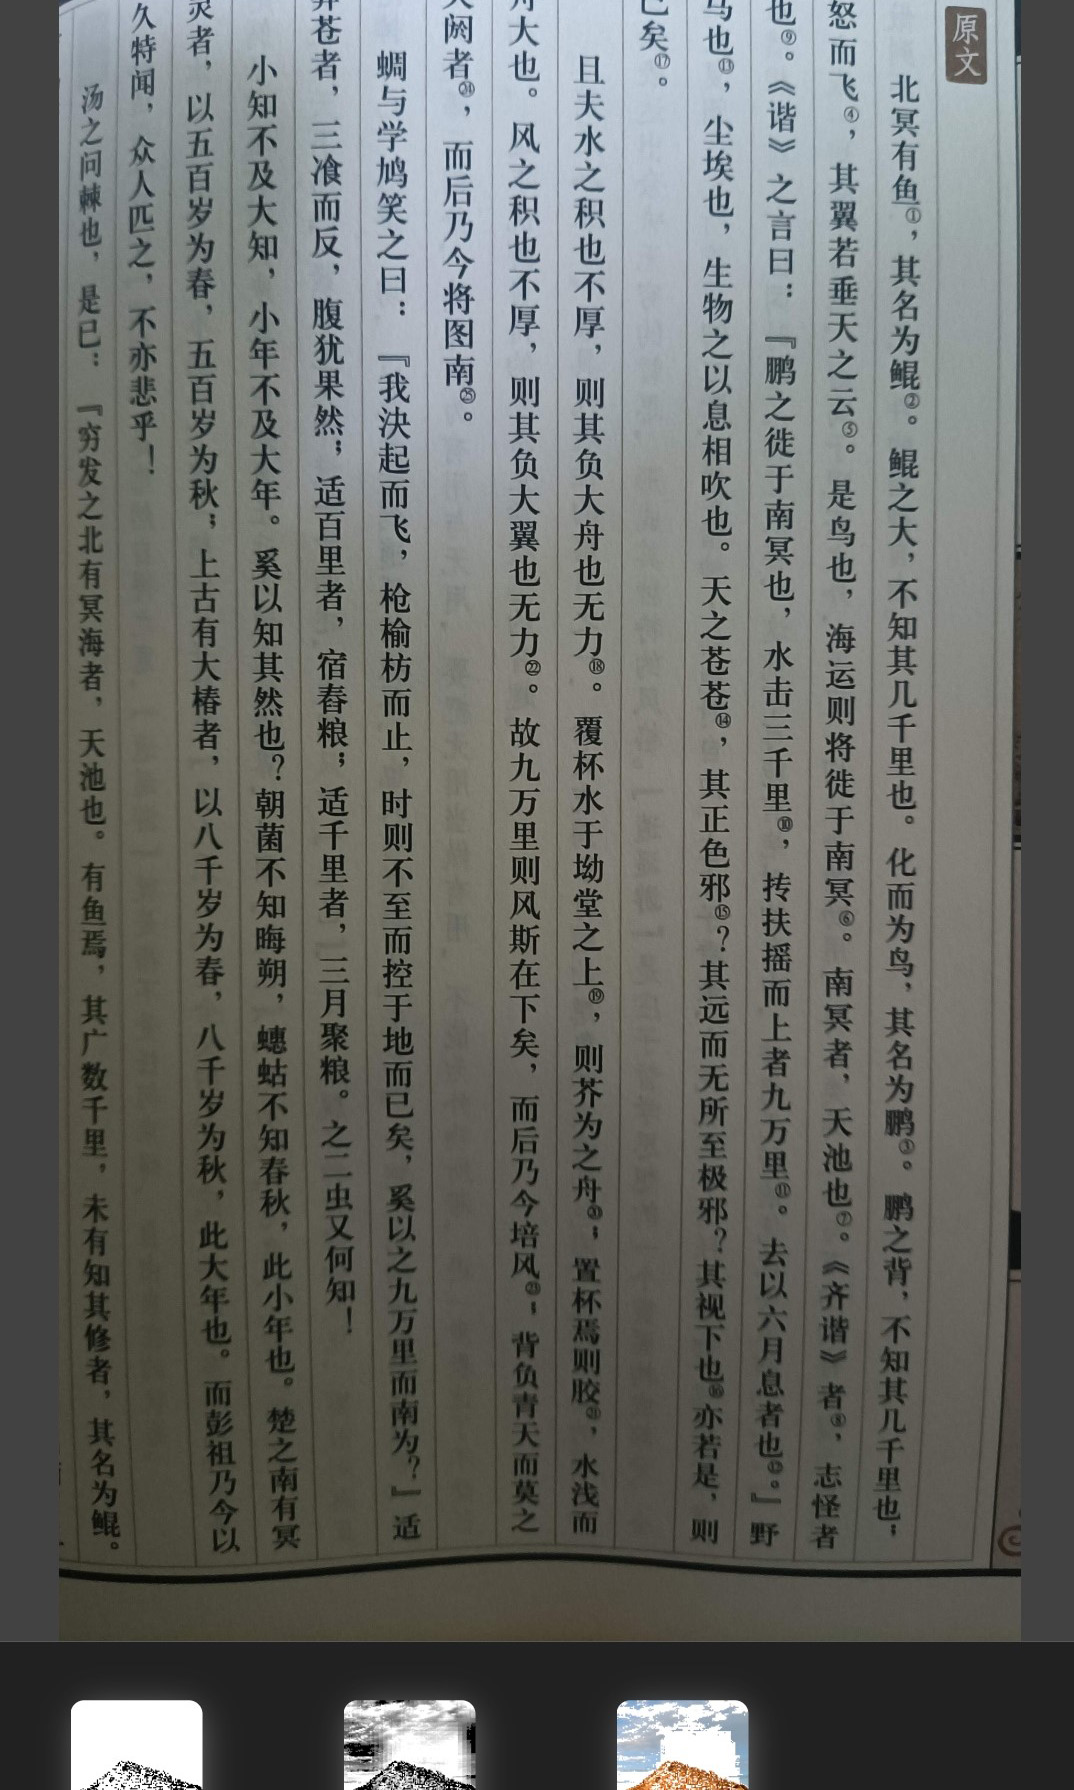 原文
北冥有鱼①，其名为鲲②。鲲之大，不知其几千里也。化而为鸟，其名为鹏③。鹏之背，不知其几千里也；
怒而飞④，其翼若垂天之云⑤。是鸟也，海运则将徙于南冥⑥。南冥者，天池也⑦。《齐谐》者⑧，志怪者
也⑨。《谐》之言曰：『鹏之徙于南冥也，水击三千里⑩，抟扶摇而上者九万里⑪。去以六月息者也⑫。』野
马也⑬，尘埃也，生物之以息相吹也。天之苍苍⑭，其正色邪⑮？其远而无所至极邪？其视下也⑯亦若是，则
已矣⑰。
且夫水之积也不厚，则其负大舟也无力⑱。覆杯水于坳堂之上⑲，则芥为之舟⑳；置杯焉则胶㉑，水浅而
舟大也。风之积也不厚，则其负大翼也无力㉒。故九万里则风斯在下矣，而后乃今培风㉓；背负青天而莫之
夭阏者㉔，而后乃今将图南㉕。
蜩与学鸠笑之曰：『我决起而飞，枪榆枋而止，时则不至而控于地而已矣，奚以之九万里而南为？』适
莽苍者，三飡而反，腹犹果然；适百里者，宿舂粮；适千里者，三月聚粮。之二虫又何知！
小知不及大知，小年不及大年。奚以知其然也？朝菌不知晦朔，蟪蛄不知春秋，此小年也。楚之南有冥
灵者，以五百岁为春，五百岁为秋；上古有大椿者，以八千岁为春，八千岁为秋，此大年也。而彭祖乃今以
久特闻，众人匹之，不亦悲乎！
汤之问棘也，是已：『穷发之北有冥海者，天池也。有鱼焉，其广数千里，未有知其修者，其名为鲲。